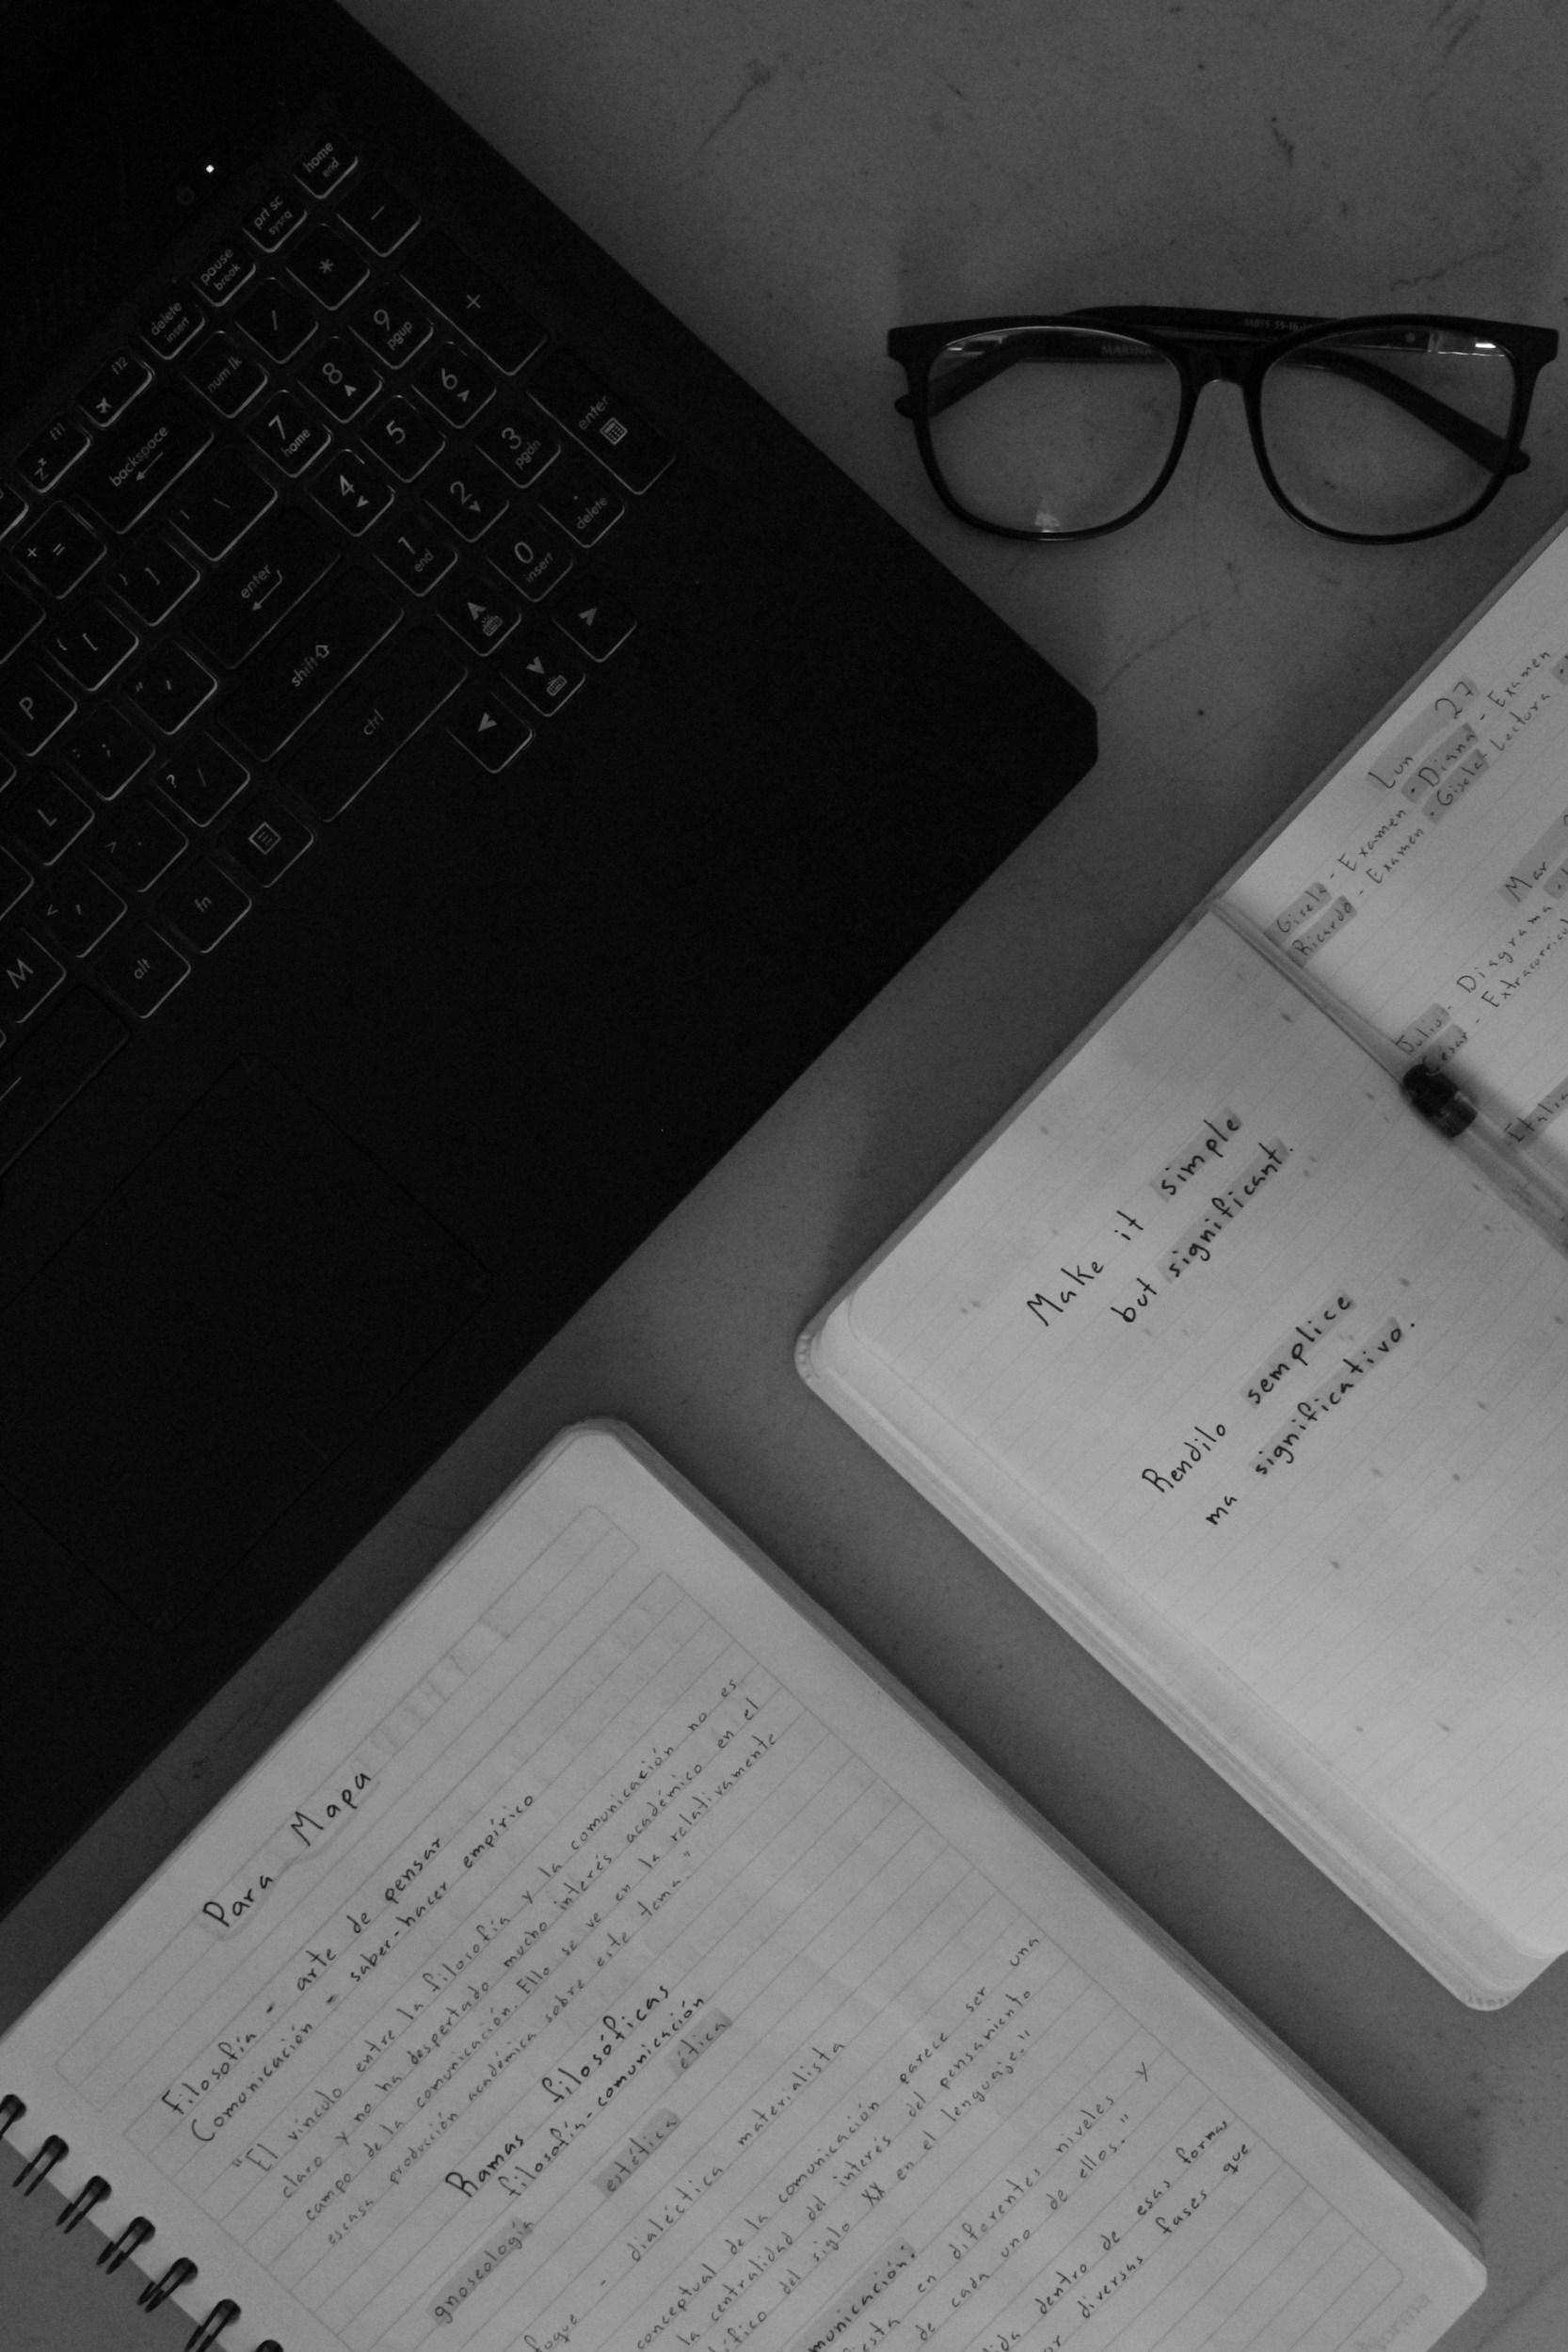 home
end
prt sc
sysrq
pause
break
delete
insert
f12
f11
backspace
num lk
/
*
-
+
7
home
8
9
pgup
4
5
6
1
end
2
3
pgdn
enter
0
insert
.
delete
+ =
} ]
{ [
P
enter
" '
: ;
L
shift
? /
> .
< ,
M
ctrl
fn
alt
MARINA
Lun 27
Gisela - Examen · Diana - Examen
Ricardo - Examen · Gisele Lectura
Mar
Julio - Diagrama
Cesar -
Make it simple
but significant.
Rendilo semplice
ma significativo.
Para Mapa
Filosofía - arte de pensar
Comunicación - saber-hacer empírico
"El vínculo entre la filosofía y la comunicación no es
claro y no ha despertado mucho interés académico en el
campo de la comunicación. Ello se ve en la relativamente
escasa producción académica sobre este tema."
Ramas filosóficas
filosofía-comunicación
gnoseología estética ética
- dialéctica materialista
conceptual de la comunicación parece ser una
la centralidad del interés del pensamiento
del siglo XX en el lenguaje."
en diferentes niveles y
de cada uno de ellos."
dentro de esas formas
diversas fases que